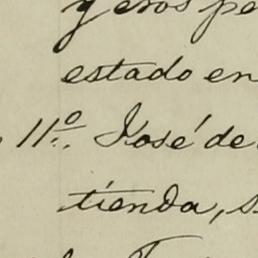 yeros pe
estado en
11º. José de
tienda, s